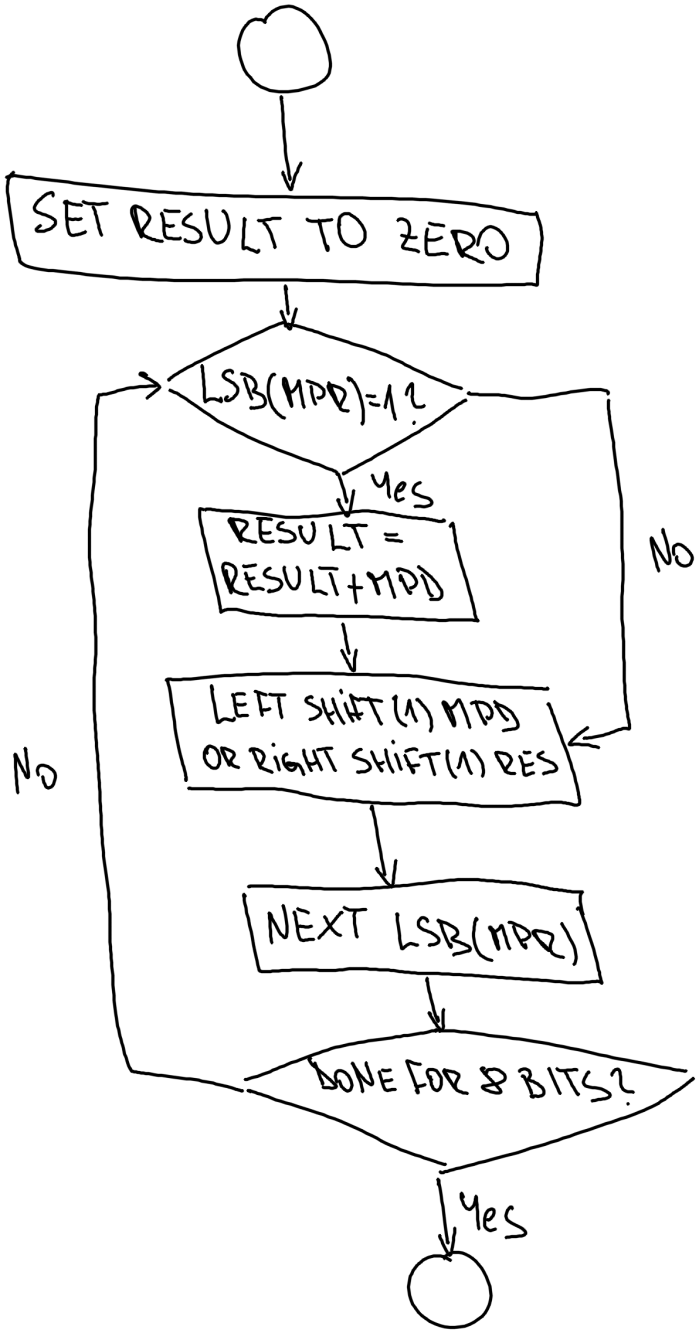 SET RESULT TO ZERO
LSB(MPR)=1?
Yes
RESULT =
RESULT+MPD
No
LEFT SHIFT(1) MPD
OR RIGHT SHIFT(1) RES
No
NEXT LSB(MPR)
DONE FOR 8 BITS?
Yes